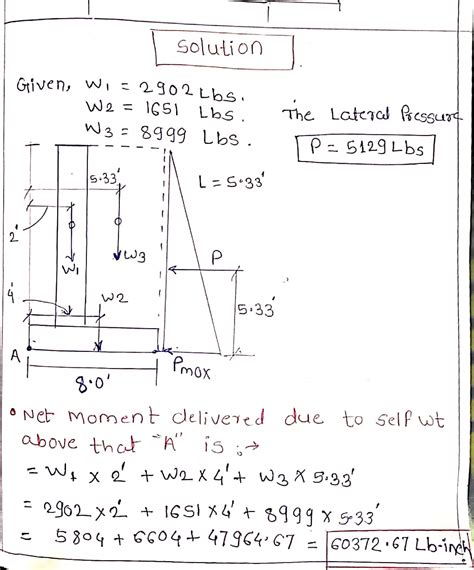 Solution
Given, W1 = 2902 Lbs.
W2 = 1651 Lbs.
W3 = 8999 Lbs.
The Lateral Pressure
P = 5129 Lbs
5.33'
L = 5.33'
2'
W1
W3
P
4'
W2
5.33'
A
8.0'
Pmax
• Net moment delivered due to self wt
above that "A" is :→
= W1 x 2' + W2 x 4' + W3 x 5.33'
= 2902 x 2' + 1651 x 4' + 8999 x 5.33'
= 5804 + 6604 + 47964.67 = 60372.67 Lb-inch